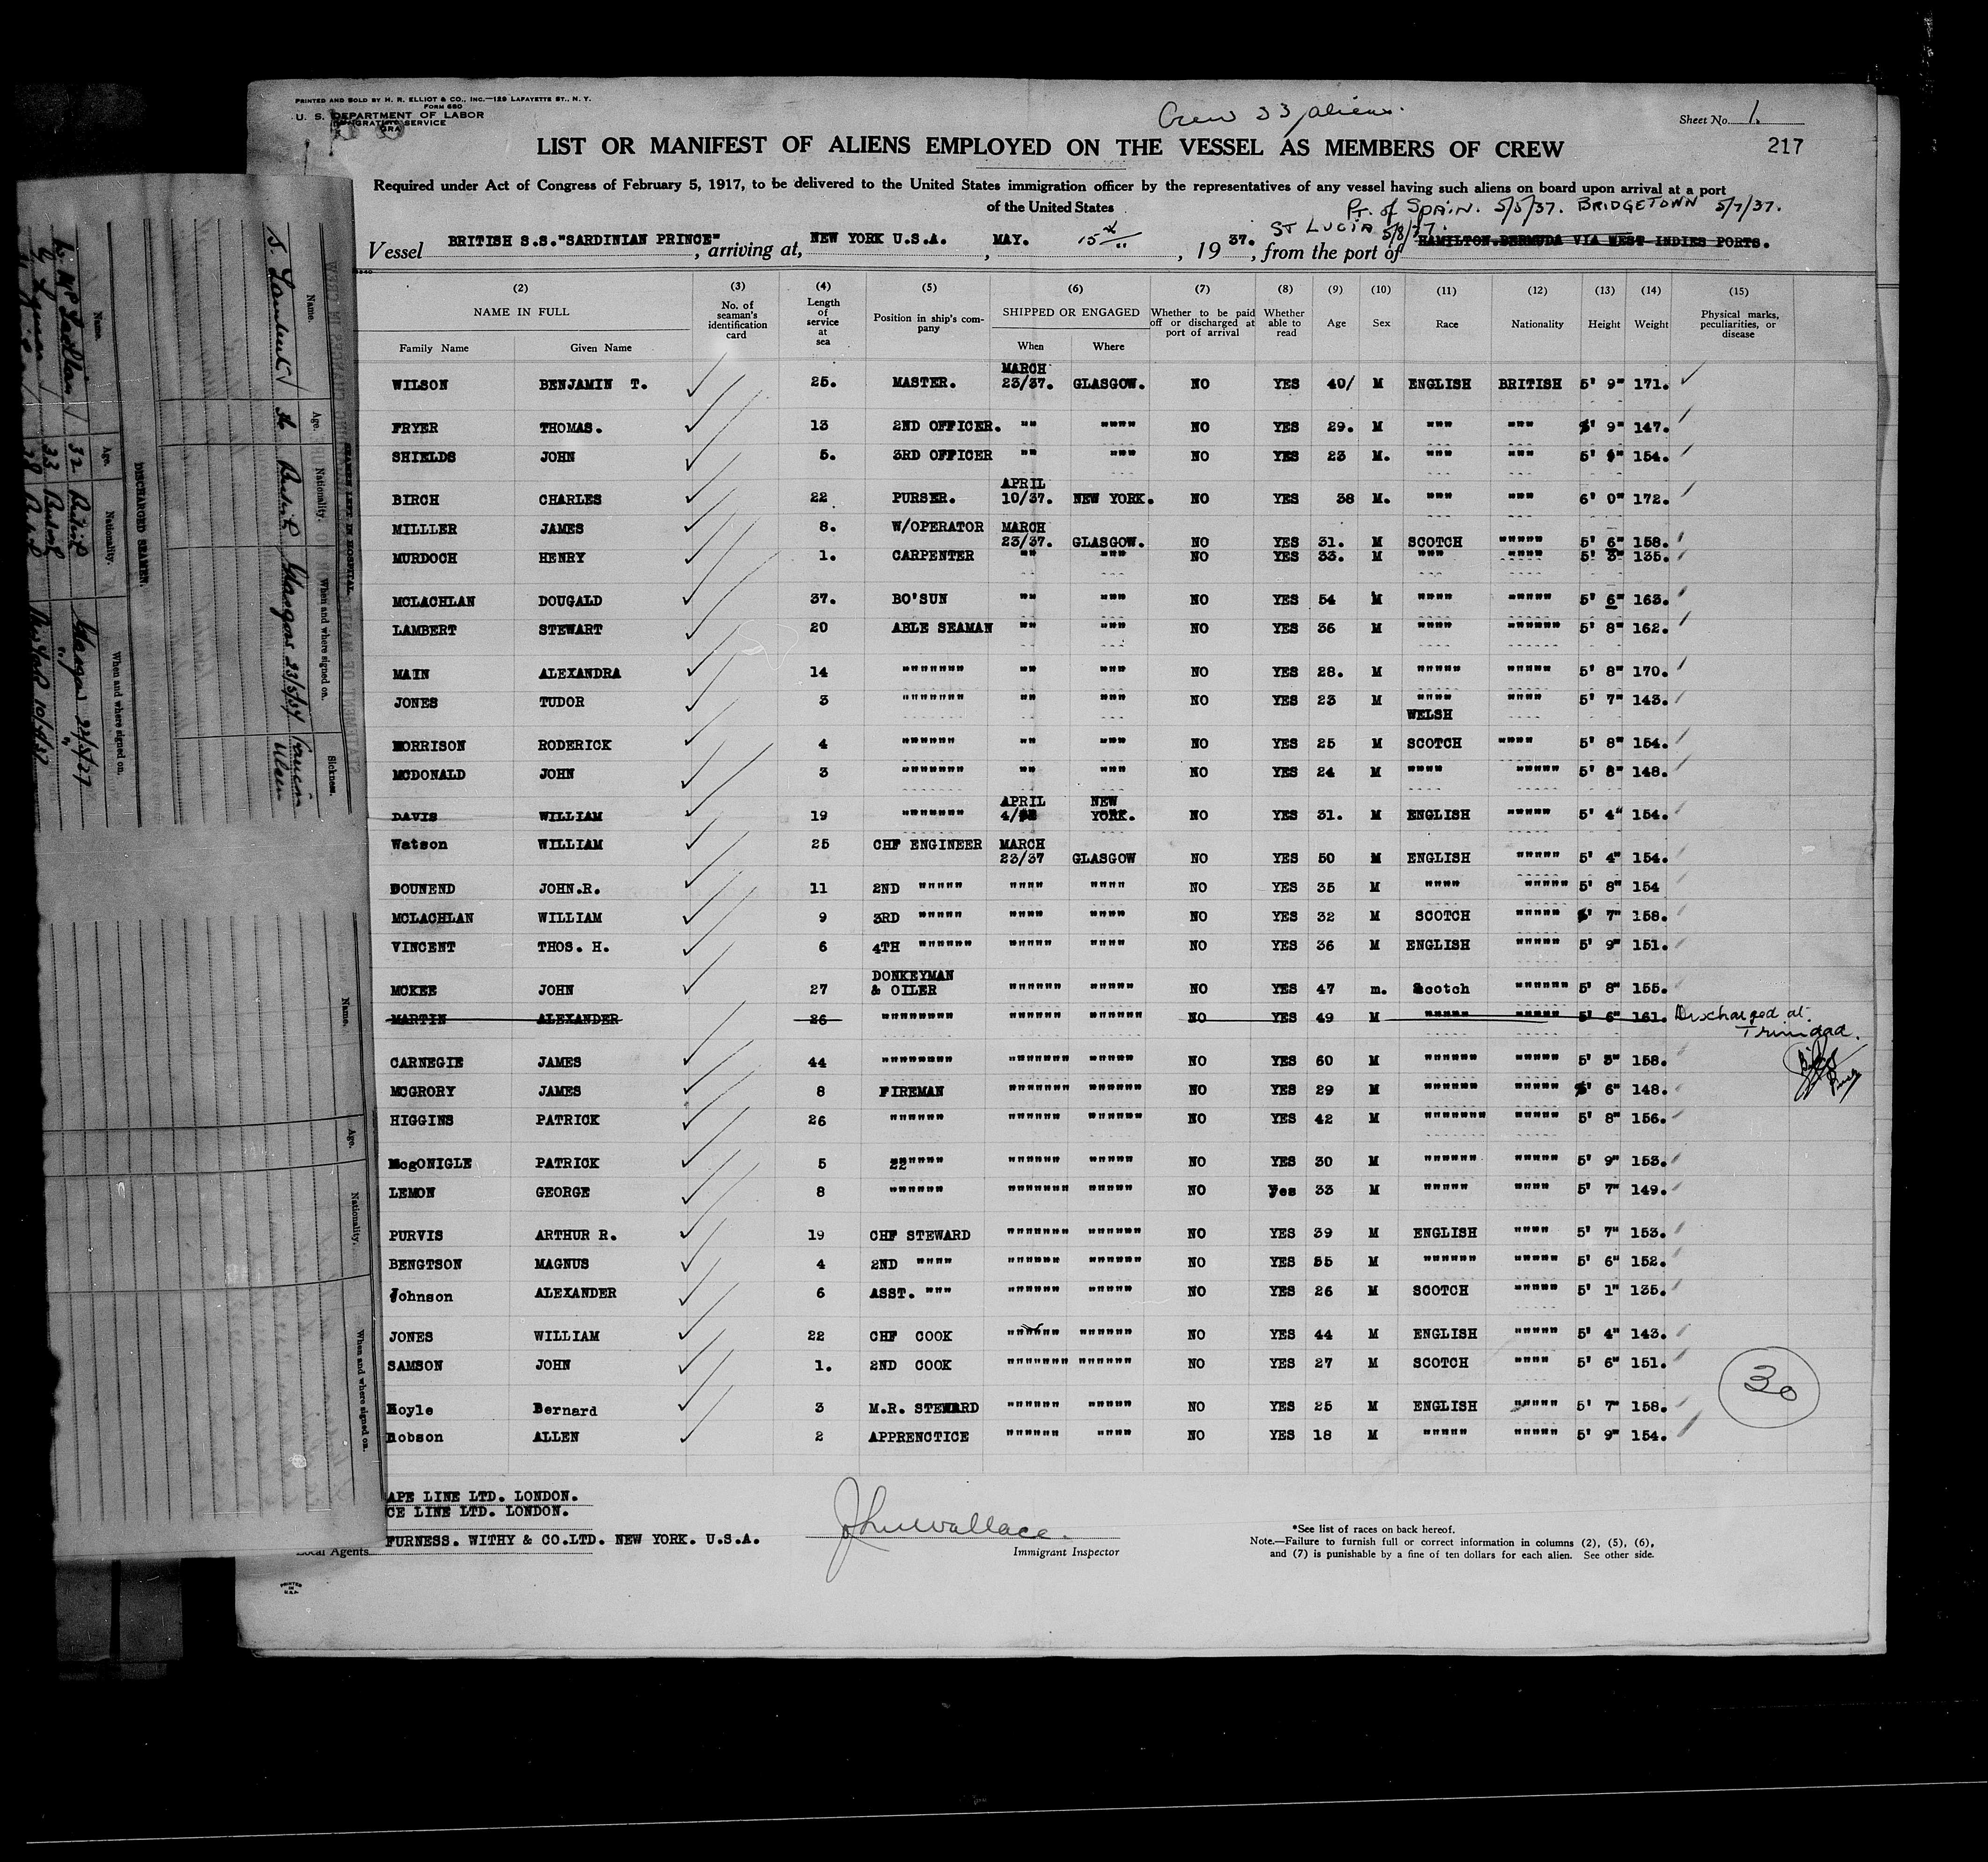 PRINTED AND SOLD BY H. R. ELLIOT & CO., INC.—129 LAFAYETTE ST., N. Y.
FORM 680
U. S. DEPARTMENT OF LABOR
IMMIGRATION SERVICE
Crew 33 aliens.
Sheet No. 1.
217
LIST OR MANIFEST OF ALIENS EMPLOYED ON THE VESSEL AS MEMBERS OF CREW
Required under Act of Congress of February 5, 1917, to be delivered to the United States immigration officer by the representatives of any vessel having such aliens on board upon arrival at a port
of the United States
Pt. of SPAIN. 5/5/37. BRIDGETOWN 5/7/37.
ST LUCIA 5/8/37.
Vessel BRITISH S.S."SARDINIAN PRINCE", arriving at, NEW YORK U.S.A., MAY. 15th, 19 37., from the port of HAMILTON.BERMUDA VIA WEST INDIES PORTS.
(2) (3) (4) (5) (6) (7) (8) (9) (10) (11) (12) (13) (14) (15)
NAME IN FULL Family Name Given Name No. of seaman's identification card Length of service at sea Position in ship's company SHIPPED OR ENGAGED When Where Whether to be paid off or discharged at port of arrival Whether able to read Age Sex Race Nationality Height Weight Physical marks, peculiarities, or disease
WILSON BENJAMIN T. 25. MASTER. MARCH 23/37. GLASGOW. NO YES 40/ M ENGLISH BRITISH 5' 9" 171.
FRYER THOMAS. 13 2ND OFFICER. "" """" NO YES 29. M """ """ 5' 9" 147.
SHIELDS JOHN 5. 3RD OFFICER "" """ NO YES 23 M. """ """ 5' 154.
BIRCH CHARLES 22 PURSER. APRIL 10/37. NEW YORK. NO YES 38 M. """ """ 6' 0" 172.
MILLLER JAMES 8. W/OPERATOR MARCH 23/37. GLASGOW. NO YES 31. M SCOTCH """"" 5' 6" 158.
MURDOCH HENRY 1. CARPENTER "" """ NO YES 33. M """ """" 5' 3" 135.
MCLACHLAN DOUGALD 37. BO'SUN "" """ NO YES 54 M """" """"" 5' 6" 163.
LAMBERT STEWART 20 ABLE SEAMAN "" """ NO YES 36 M """" """""" 5' 8" 162.
MAIN ALEXANDRA 14 """"""" "" """ NO YES 28. M """"" """"" 5' 8" 170.
JONES TUDOR 3 """"""" "" """ NO YES 23 M """" WELSH """" 5' 7" 143.
MORRISON RODERICK 4 """""" "" """ NO YES 25 M SCOTCH """" 5' 8" 154.
MCDONALD JOHN 3 """"""" "" """ NO YES 24 M """" """"" 5' 8" 148.
DAVIS WILLIAM 19 """"""" APRIL 4/ NEW YORK. NO YES 31. M ENGLISH """"" 5' 4" 154.
Watson WILLIAM 25 CHF ENGINEER MARCH 23/37 GLASGOW NO YES 50 M ENGLISH """"" 5' 4" 154.
DOUNEND JOHN.R. 11 2ND """"" """" """" NO YES 35 M """" """"" 5' 8" 154
MCLACHLAN WILLIAM 9 3RD """"" """" """" NO YES 32 M SCOTCH """"" 5' 7" 158.
VINCENT THOS. H. 6 4TH """""" """"" """" NO YES 36 M ENGLISH """"" 5' 9" 151.
MCKEE JOHN 27 DONKEYMAN & OILER """""" """""" NO YES 47 m. Scotch """""" 5' 8" 155.
MARTIN ALEXANDER 26 """""""" """""" """""" NO YES 49 M """"" """"" 5' 6" 161. Discharged at Trinidad.
CARNEGIE JAMES 44 """""""" """"""" """""" NO YES 60 M """""" """"" 5' 3" 158.
MCGRORY JAMES 8 FIREMAN """"""" """""" NO YES 29 M """""" """"" 5' 6" 148.
HIGGINS PATRICK 26 """""" """""" """""" NO YES 42 M """"""" """"" 5' 8" 156.
McgONIGLE PATRICK 5 """""" """""" """"" NO YES 30 M """""" """"" 5' 9" 153.
LEMON GEORGE 8 """""" """"""" """"" NO Yes 33 M """"" """" 5' 7" 149.
PURVIS ARTHUR R. 19 CHF STEWARD """"""" """""" NO YES 39 M ENGLISH """" 5' 7" 153.
BENGTSON MAGNUS 4 2ND """" """""" """""" NO YES 55 M """""" """"" 5' 6" 152.
Johnson ALEXANDER 6 ASST. """ """""" """"" NO YES 26 M SCOTCH """"" 5' 1" 135.
JONES WILLIAM 22 CHF COOK """""" """""" NO YES 44 M ENGLISH """"" 5' 4" 143.
SAMSON JOHN 1. 2ND COOK """"""" """""" NO YES 27 M SCOTCH """" 5' 6" 151.
Hoyle Bernard 3 M.R. STEWARD """""" """"" NO YES 25 M ENGLISH """"" 5' 7" 158.
Robson ALLEN 2 APPRENCTICE """""" """" NO YES 18 M """"" """"" 5' 9" 154.
30
APE LINE LTD. LONDON.
CE LINE LTD. LONDON.
FURNESS. WITHY & CO.LTD. NEW YORK. U.S.A.
Local Agents
John Wallace.
Immigrant Inspector
*See list of races on back hereof.
Note.—Failure to furnish full or correct information in columns (2), (5), (6),
and (7) is punishable by a fine of ten dollars for each alien. See other side.
PRINTED IN U.S.A.
SEAMEN LEFT IN HOSPITAL.
Name. Age. Nationality. When and where signed on. Sickness.
S. Lambert British Glasgow 23/3/37
DISCHARGED SEAMEN.
Name. Age. Nationality. When and where signed on.
32 British Glasgow
33 British
New York
Name. Age. Nationality. When and where signed on.